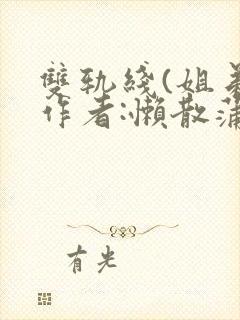 雙軌綫(姐弟
作者:懶散蒲
有光